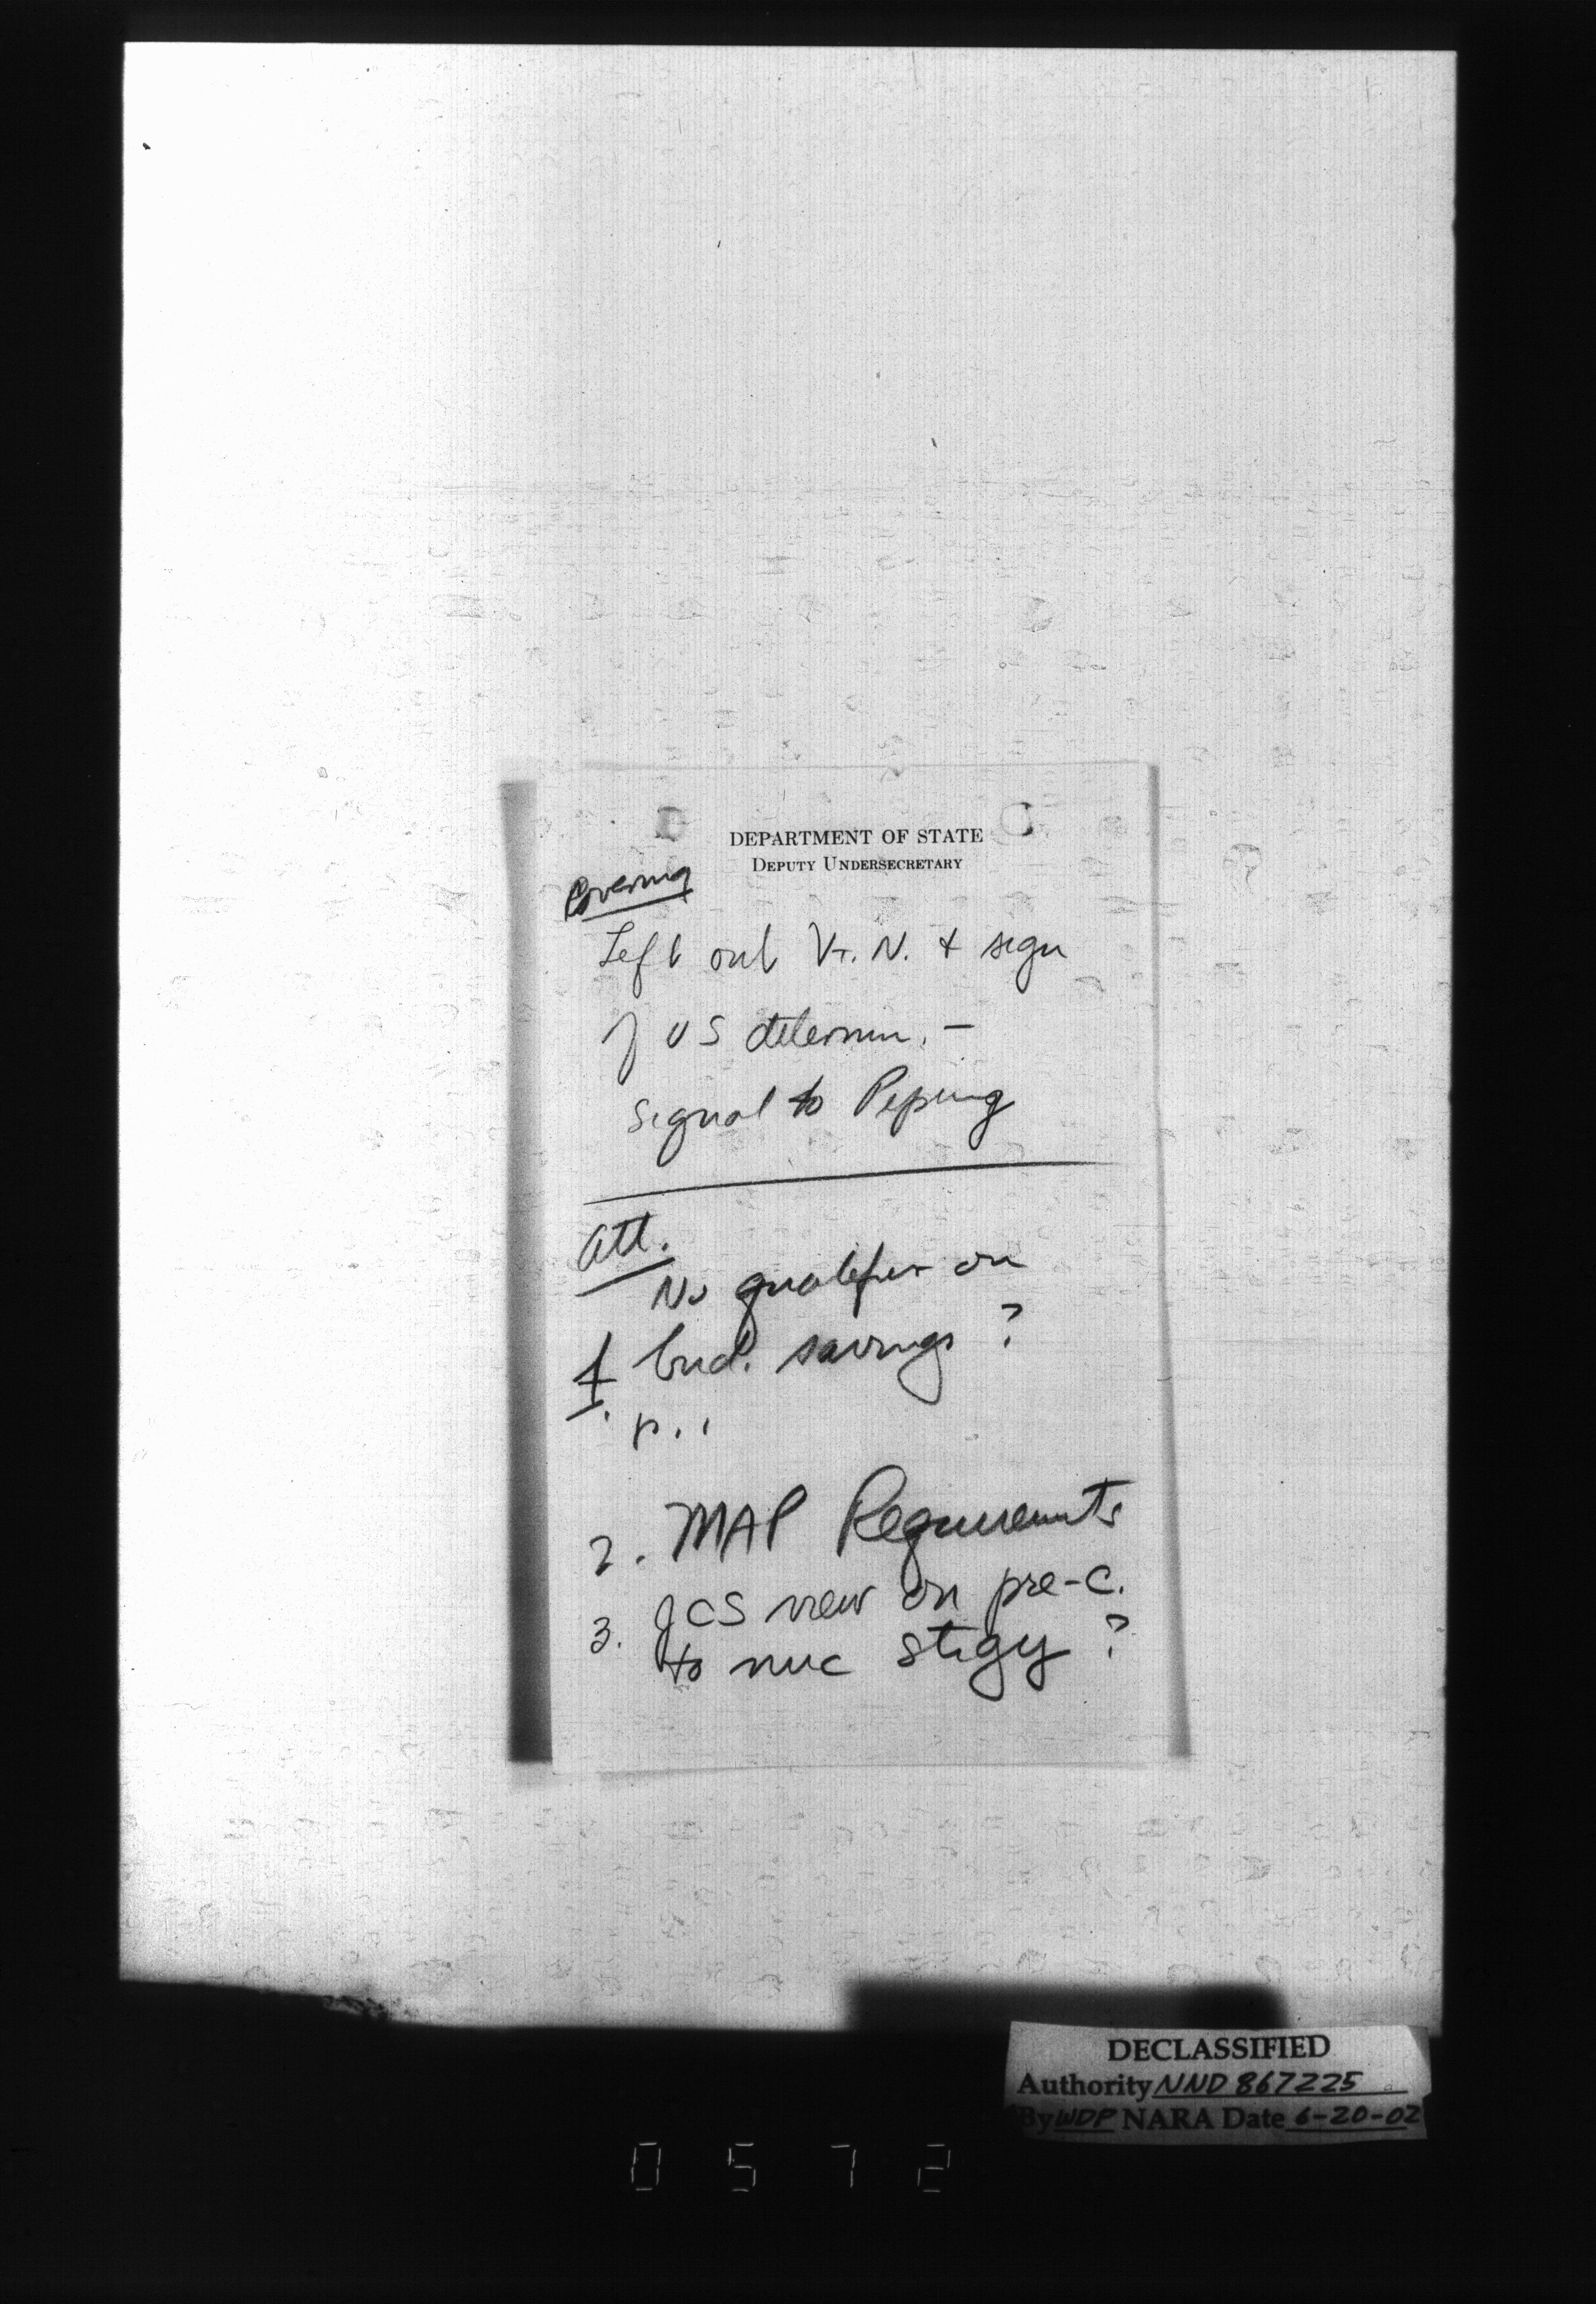 DEPARTMENT OF STATE
DEPUTY UNDERSECRETARY
Covering
Left out V. N. + sign
of US determin. —
signal to Peping
Att.
No qualifier on
1. bud. savings ?
p. 1
2. MAP Requirements
3. JCS view on pre-c.
to nuc stgy ?
DECLASSIFIED
Authority NND 867225
By WDP NARA Date 6-20-02
0572